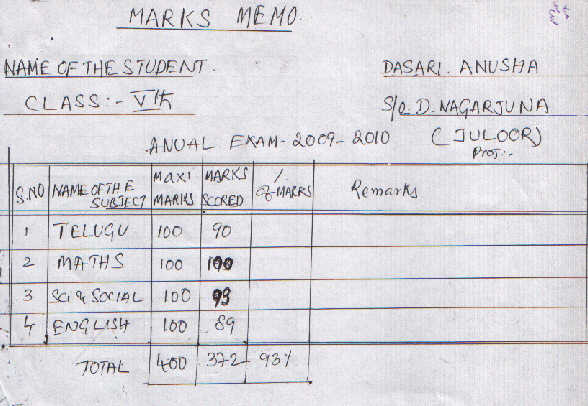 MARKS MEMO.
NAME OF THE STUDENT. DASARI. ANUSHA
CLASS:- Vth S/o. D. NAGARJUNA
ANUAL EXAM- 2009-2010 (JULOOR)
S.NO NAME OF THE SUBJECT MAXI MARKS MARKS SCORED % OF MARKS Remarks
1 TELUGU 100 90
2 MATHS 100 100
3 SCI & SOCIAL 100 93
4 ENGLISH 100 89
TOTAL 400 372 93%